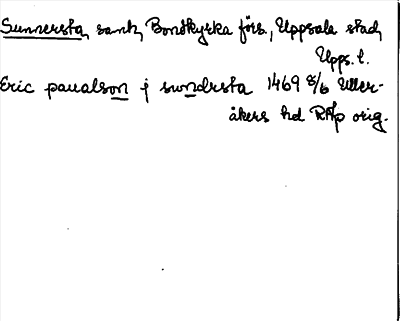 Sunnersta, samt, Bondkyrka förs., Uppsala stad,
Upps. l.
Eric paualson j swndrsta 1469 8/6 Uller-
åkers hd RAp orig.